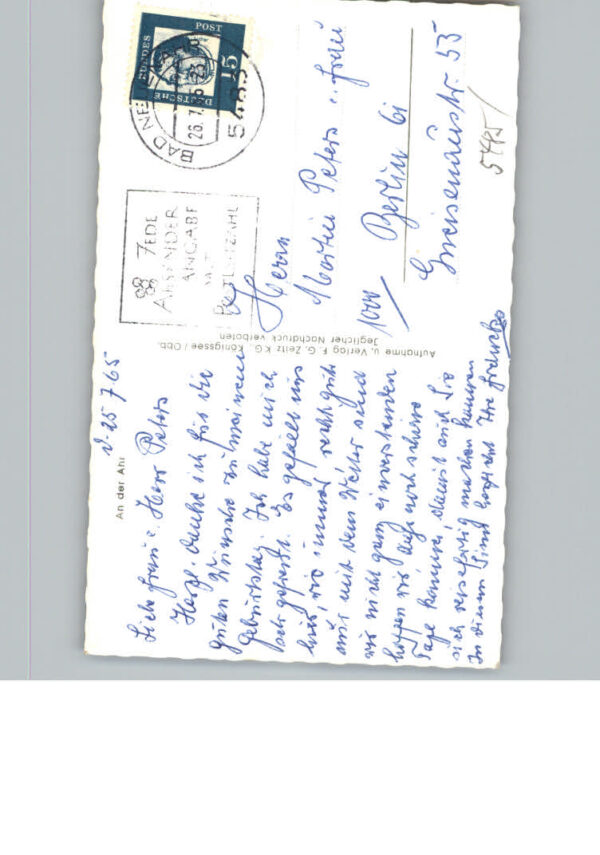 An der Ahr
d. 25 7. 65
Liebe Frau u. Herr Peters
Herzl. danke ich für die
guten Wünsche zu meinem
Geburtstag. Ich habe mich
sehr gefreut. Es gefällt uns
hier, wie immer recht gut
nur mit dem Wetter sind
wir nicht ganz einverstanden
hoffen wir auf noch schöne
Tage kommen, damit auch Sie
sich reisefertig machen können
In diesem Sinne
Aufnahme u. Verlag F. G. Zeitz K.G., Königssee / Obb.
Jeglicher Nachdruck verboten
DEUTSCHE BUNDESPOST
5
BAD NEUENAHR
26.7.65
5483
JEDE
ABSENDER
ANGABE
MIT
POSTLEITZAHL
Herrn
Martin Peters u. Frau
1000 Berlin 61
Gneisenaustr. 53
5445/